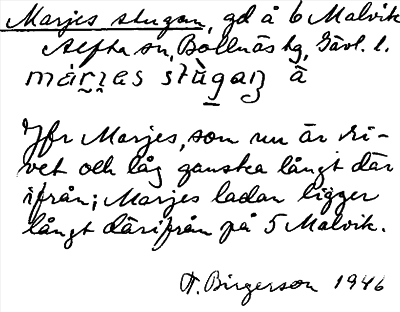 Marjes stugan, gd å 6 Malvik
Alfta sn, Bollnäs tg, Gävl. l.
márjas stùgaɳ å
Jfr Marjes, som nu är ri-
vet och låg ganska långt där
ifrån; Marjes ladan ligger
långt därifrån på 5 Malvik.
F. Birgerson 1946